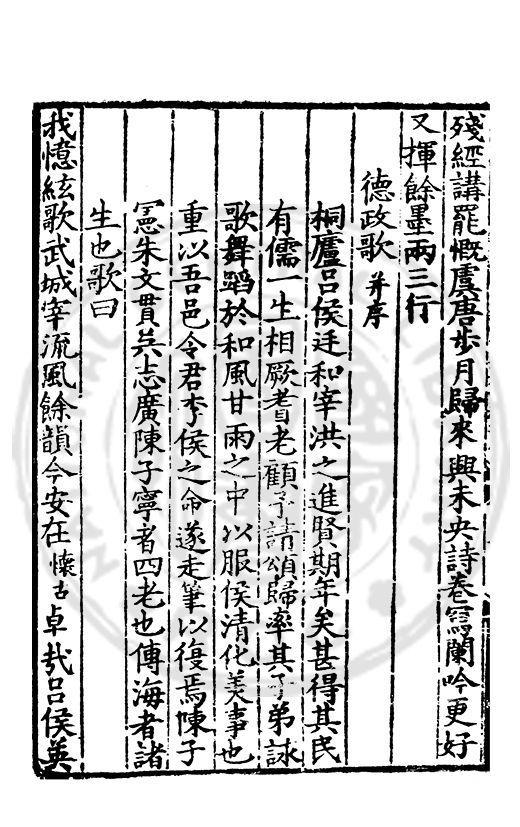 殘經講罷慨虞唐步月歸來興未央詩卷寫闌吟更好
又揮餘墨兩三行
德政歌并序
桐廬呂侯廷和宰洪之進賢期年矣甚得其民
有儒一生相厥耆老顧予請頌歸率其子弟詠
歌舞蹈於和風甘雨之中以服侯清化美事也
重以吾邑令君李侯之命遂走筆以復焉陳子
憲朱文貫吳志廣陳子寧者四老也傳海者諸
生也歌曰
我憶絃歌武城宰流風餘韻今安在懷古卓哉呂侯英